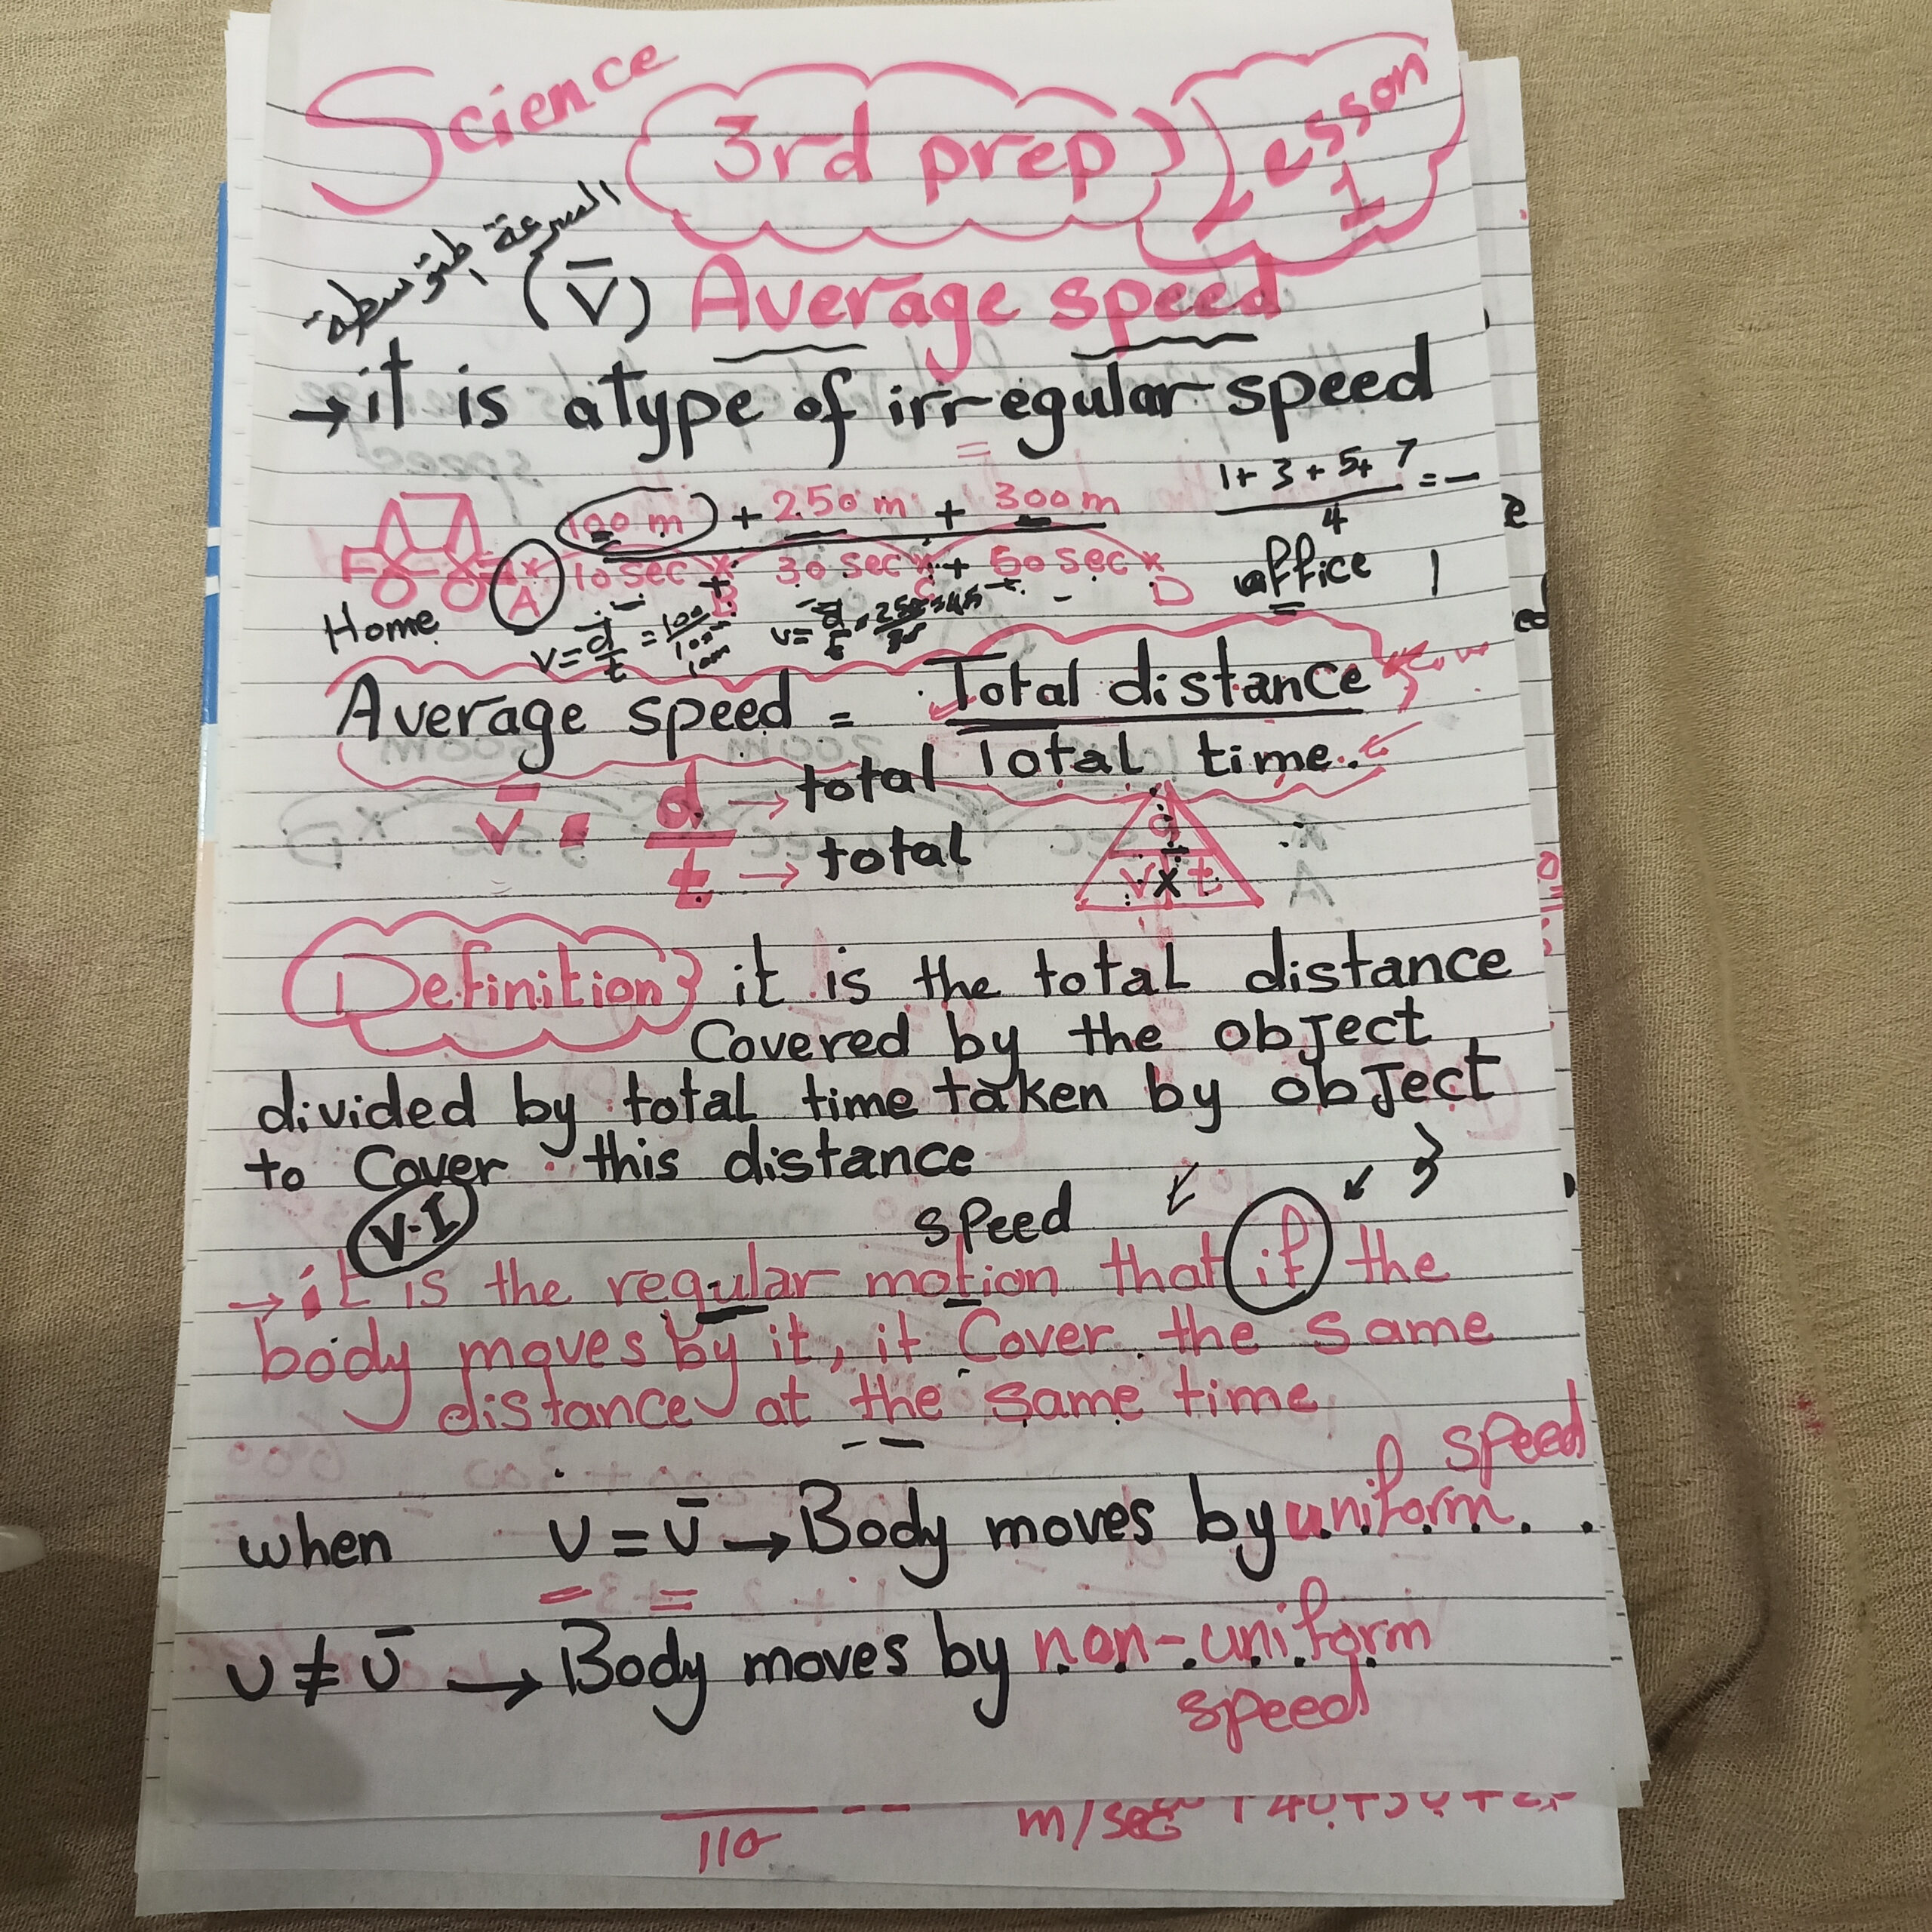 Science
3rd prep
Lesson 1
السرعة المتوسطة
(V̄) Average speed
→ it is a type of irregular speed
100 m + 250 m + 300 m
1 + 3 + 5 + 7 = -
4
A 10 sec + B 30 sec C + 50 sec D
office
Home
V = d/t = 100
V = d/t
Average speed = Total distance
Total time
V̄ = d → total
t → total
d
V x t
Definition it is the total distance
Covered by the object
divided by total time taken by object
to Cover this distance
V.I
speed
→ it is the regular motion that if the
body moves by it, it Cover the same
distance at the same time
speed
when υ = ῡ → Body moves by uniform
υ ≠ ῡ → Body moves by non-uniform
speed
110
m/sec